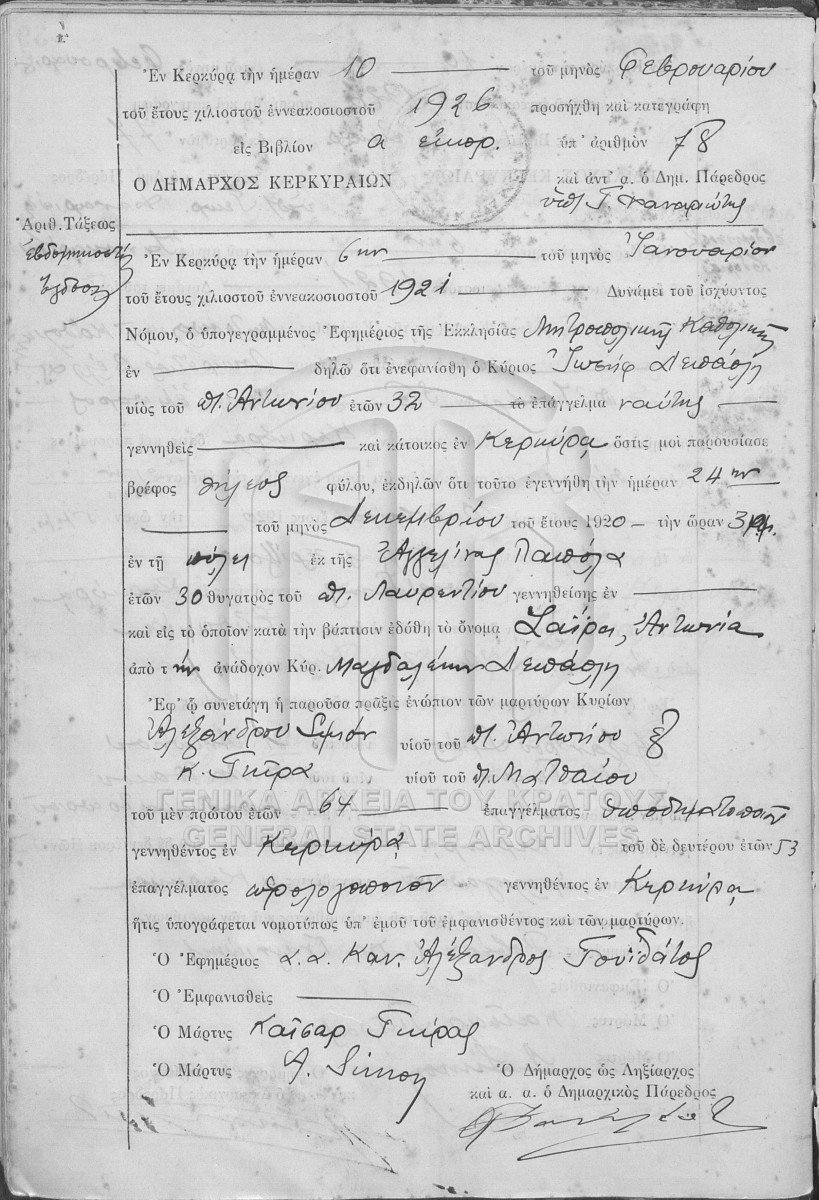 Ἐν Κερκύρᾳ τὴν ἡμέραν 10 τοῦ μηνὸς Φεβρουαρίου
τοῦ ἔτους χιλιοστοῦ ἐννεακοσιοστοῦ 1926 προσήχθη καὶ κατεγράφη
εἰς Βιβλίον α ἐκπρ. ὑπ' ἀριθμὸν 78
Ο ΔΗΜΑΡΧΟΣ ΚΕΡΚΥΡΑΙΩΝ καὶ ἀντ' α. ὁ Δημ. Πάρεδρος
Γ.
Ἀριθ. Τάξεως
Ἑβδομηκοστή
Ὀγδόη
Ἐν Κερκύρᾳ τὴν ἡμέραν 6ην τοῦ μηνὸς Ἰανουαρίου
τοῦ ἔτους χιλιοστοῦ ἐννεακοσιοστοῦ 1921 Δυνάμει τοῦ ἰσχύοντος
Νόμου, ὁ ὑπογεγραμμένος Ἐφημέριος τῆς Ἐκκλησίας Μητροπολιτικῆς Καθολικῆς
ἐν δηλῶ ὅτι ἐνεφανίσθη ὁ Κύριος Ἰωσὴφ Δεπάολη
υἱὸς τοῦ ποτ. Ἀντωνίου ἐτῶν 32 τὸ ἐπάγγελμα ναύτης
γεννηθεὶς καὶ κάτοικος ἐν Κερκύρᾳ ὅστις μοὶ παρουσίασε
βρέφος θήλεος φύλου, ἐκδηλῶν ὅτι τοῦτο ἐγεννήθη τὴν ἡμέραν 24ην
τοῦ μηνὸς Δεκεμβρίου τοῦ ἔτους 1920 τὴν ὥραν 3
ἐν τῇ πόλει ἐκ τῆς Ἀγγελίνας
ἐτῶν 30 θυγατρὸς τοῦ ποτ. Λαυρεντίου γεννηθείσης ἐν
καὶ εἰς τὸ ὁποῖον κατὰ τὴν βάπτισιν ἐδόθη τὸ ὄνομα Ζαΐρα, Ἀντωνία
ἀπὸ τ ὴν ἀνάδοχον Κύρ. Μαγδαληνὴν Δεπάολη
Ἐφ' ᾧ συνετάγη ἡ παροῦσα πρᾶξις ἐνώπιον τῶν μαρτύρων Κυρίων
Ἀλεξάνδρου Σιμὸν υἱοῦ τοῦ ποτ. Ἀντωνίου
Κ. Γκίρα υἱοῦ τοῦ π. Ματθαίου
ΓΕΝΙΚΑ ΑΡΧΕΙΑ ΤΟΥ ΚΡΑΤΟΥΣ
τοῦ μὲν πρώτου ἐτῶν 64 ἐπαγγέλματος ὑποδηματοποιοῦ
GENERAL STATE ARCHIVES
γεννηθέντος ἐν Κερκύρᾳ τοῦ δὲ δευτέρου ἐτῶν 53
ἐπαγγέλματος ὡρολογοποιοῦ γεννηθέντος ἐν Κερκύρᾳ
ἥτις ὑπογράφεται νομοτύπως ὑπ' ἐμοῦ τοῦ ἐμφανισθέντος καὶ τῶν μαρτύρων.
Ὁ Ἐφημέριος Καν. Ἀλέξανδρος Γουϊδάτος
Ὁ Ἐμφανισθεὶς
Ὁ Μάρτυς Καῖσαρ Γκίρας
Ὁ Μάρτυς A. Simon Ὁ Δήμαρχος ὡς Ληξίαρχος
καὶ α. α. ὁ Δημαρχικὸς Πάρεδρος